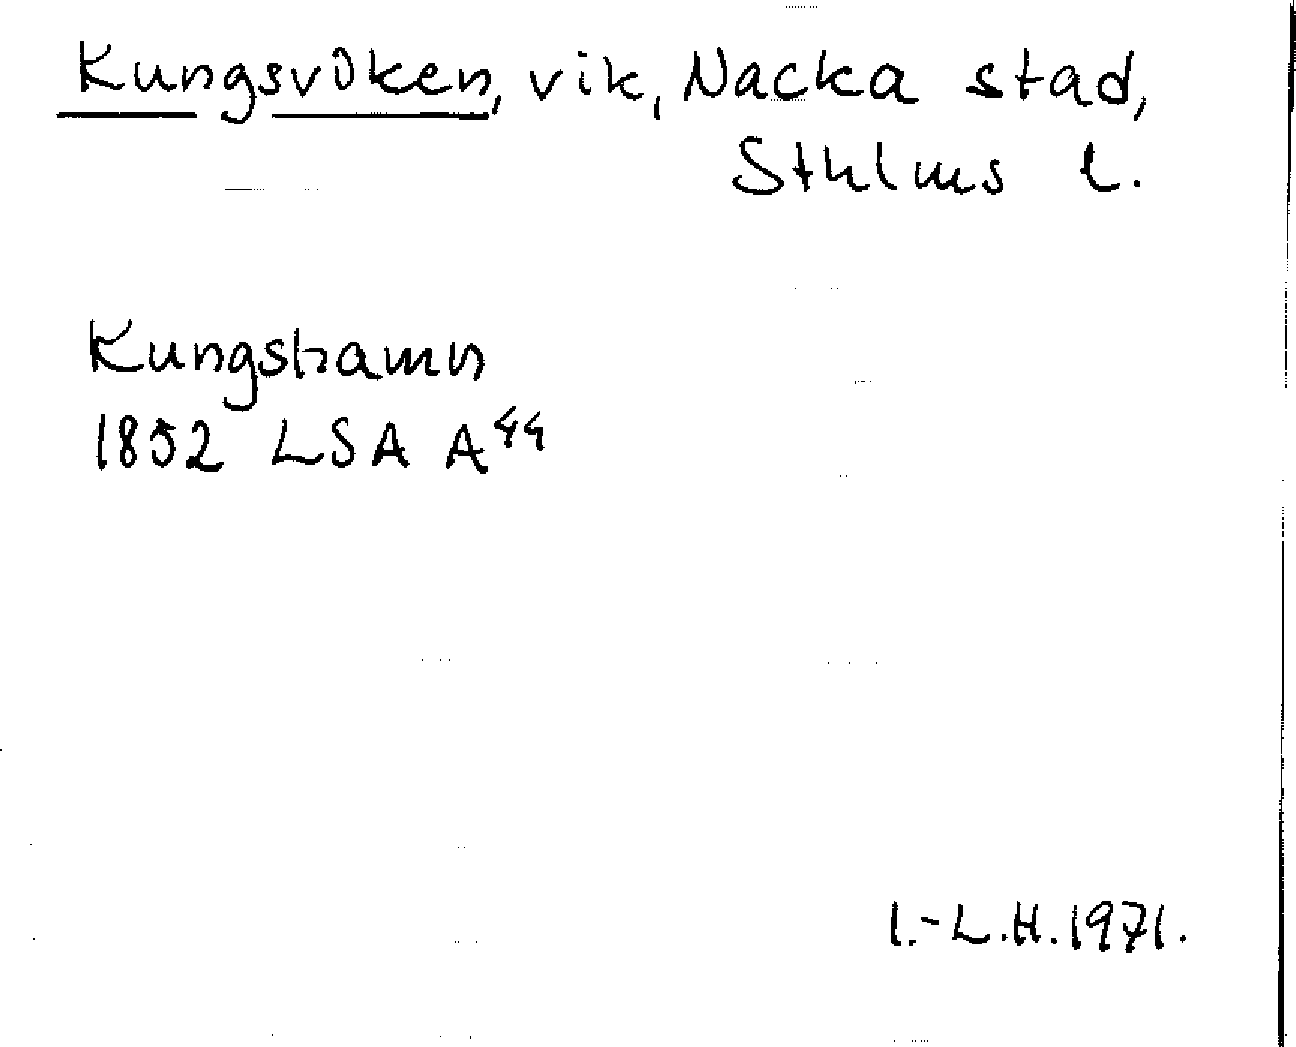 Kungsvöken, vik, Nacka stad,
Sthlms l.
Kungshamn
1852 LSA A⁴⁴
I.-L.H. 1971.